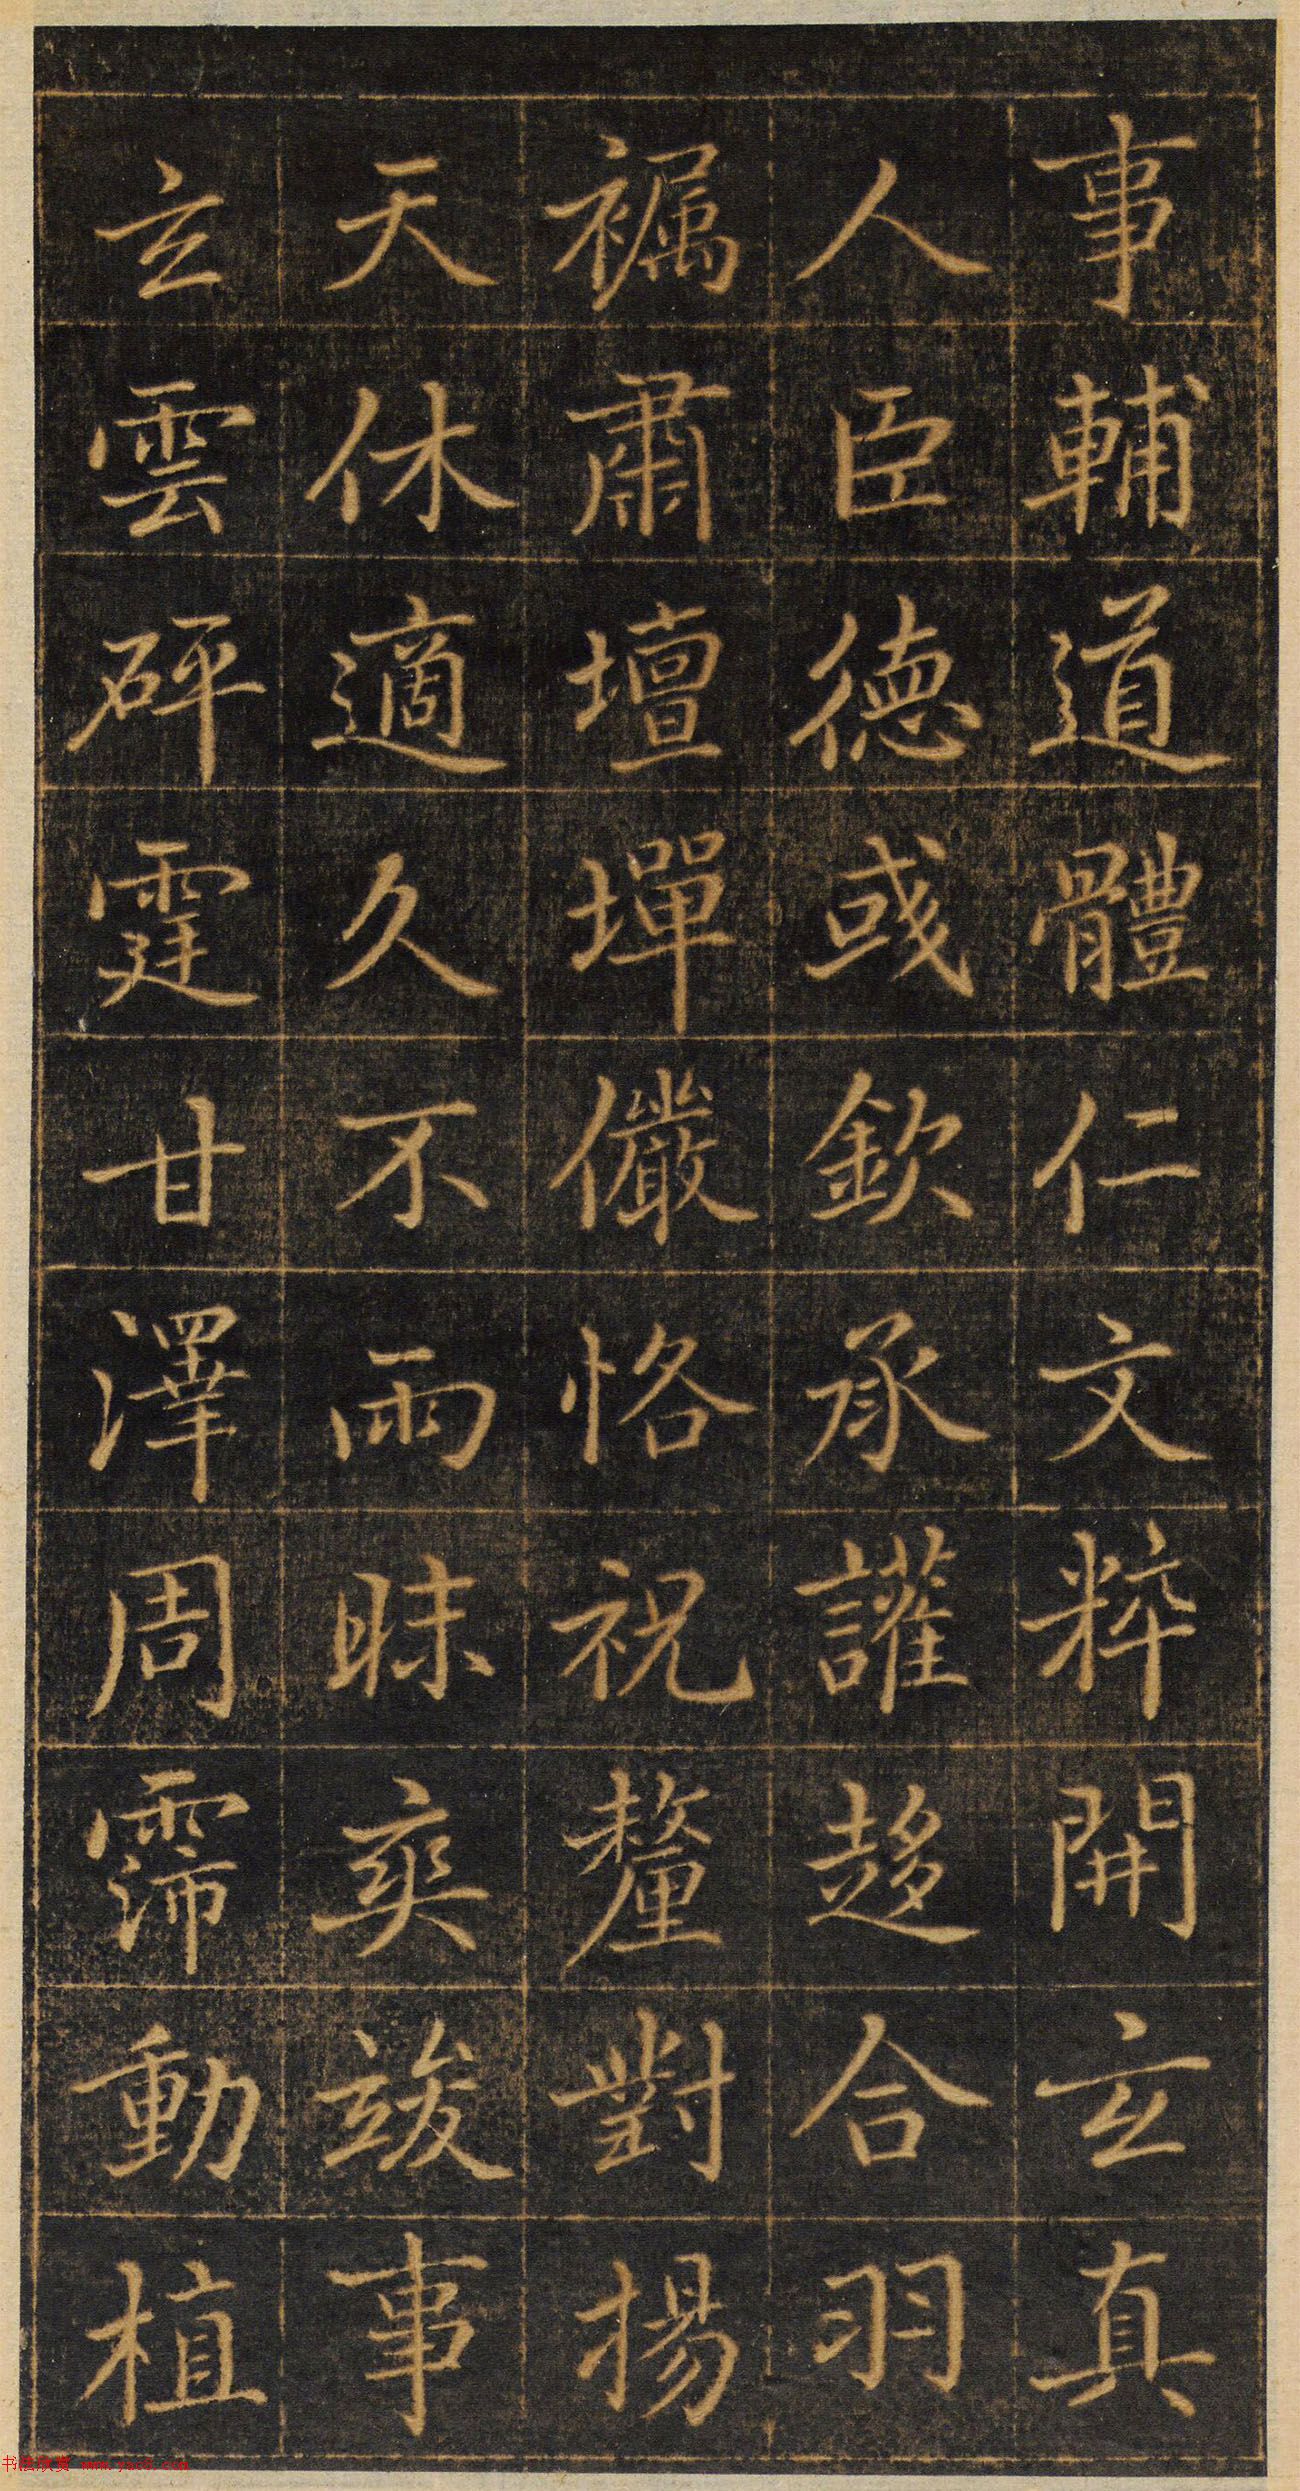 事輔道體仁文粹開玄真
人臣德彧欽承讙趍合羽
襡肅壇墠儼恪祝釐對揚
天休適久不雨昧爽竣事
玄雲砰霆甘澤周霈動植
书法欣赏 www.yac8.com